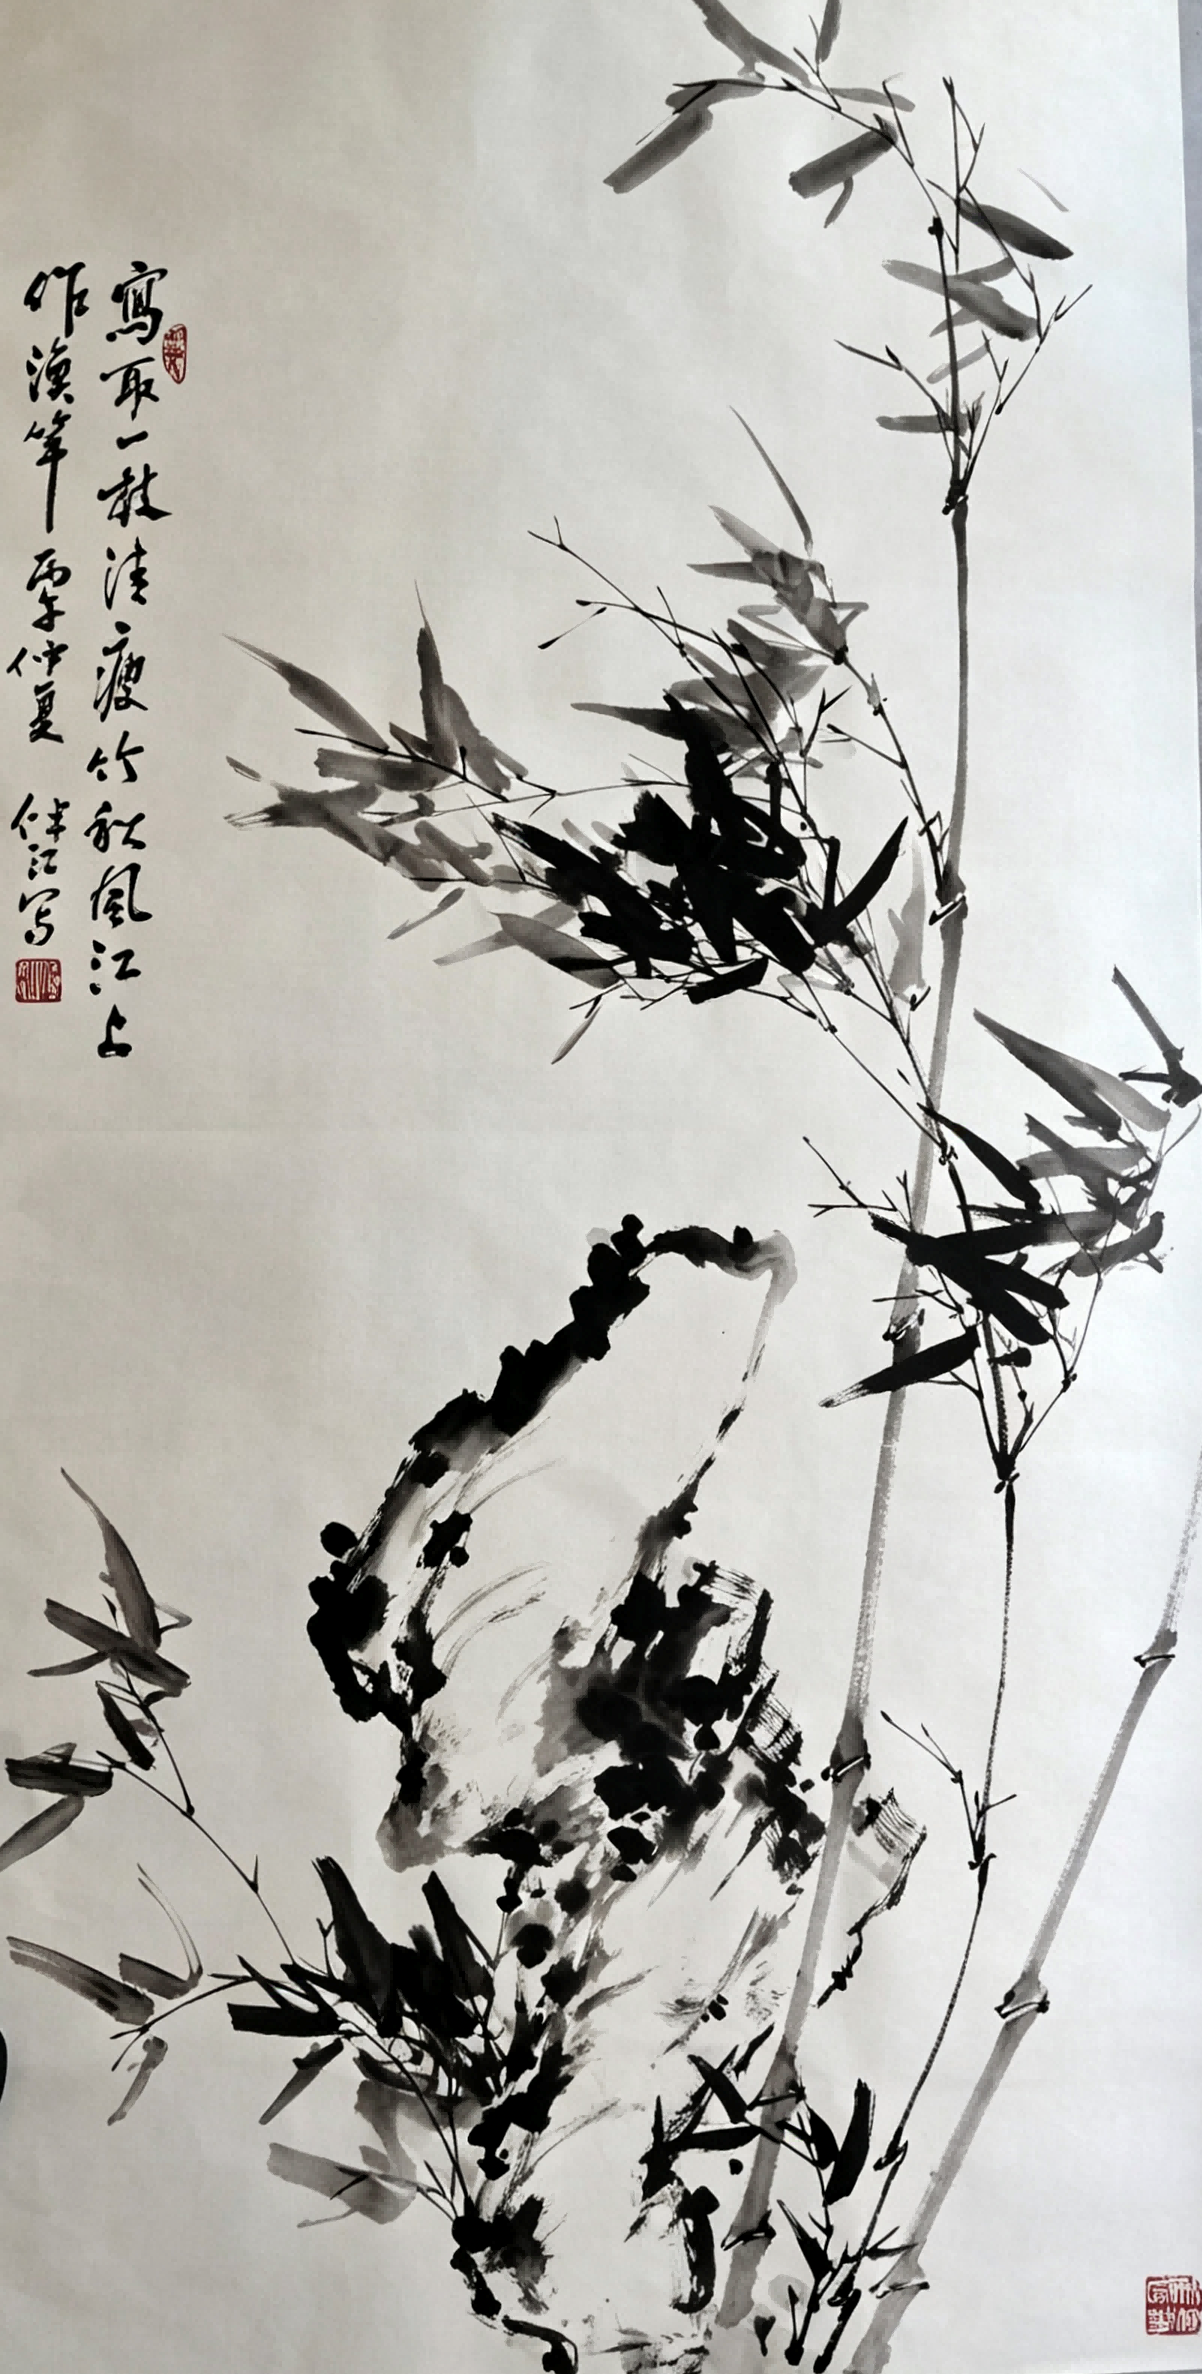 寫取一枝清瘦竹秋風江上
作漁竿 丙午仲夏 伴江写